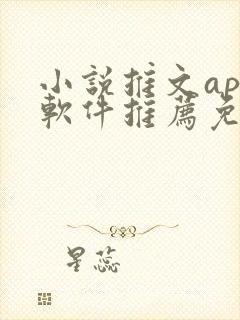 小說推文ap
軟件推薦免
星蕊